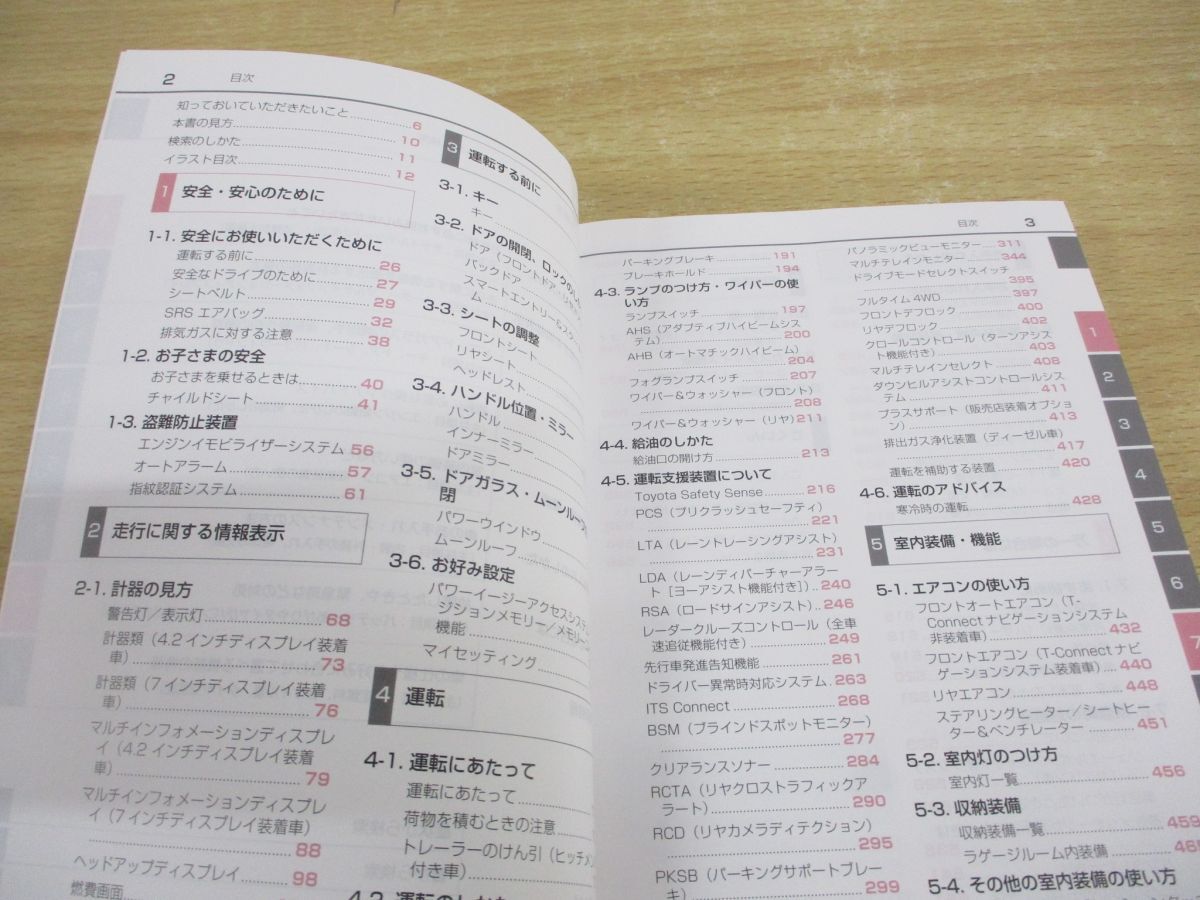 2
目次
知っておいていただきたいこと............6
本書の見方............10
検索のしかた............11
イラスト目次............12
1 安全・安心のために
1-1. 安全にお使いいただくために
運転する前に............26
安全なドライブのために............27
シートベルト............29
SRS エアバッグ............32
排気ガスに対する注意............38
1-2. お子さまの安全
お子さまを乗せるときは............40
チャイルドシート............41
1-3. 盗難防止装置
エンジンイモビライザーシステム 56
オートアラーム............57
指紋認証システム............61
2 走行に関する情報表示
2-1. 計器の見方
警告灯/表示灯............68
計器類（4.2 インチディスプレイ装着
車）............73
計器類（7 インチディスプレイ装着
車）............76
マルチインフォメーションディスプレ
イ（4.2 インチディスプレイ装着
車）............79
マルチインフォメーションディスプレ
イ（7 インチディスプレイ装着車）
............88
ヘッドアップディスプレイ............98
燃費画面
3 運転する前に
3-1. キー
キー............
3-2. ドアの開閉、ロックの
ドア（フロントドア・リヤ
バックドア............
スマートエントリー&ス
ム............
3-3. シートの調整
フロントシート............
リヤシート............
ヘッドレスト............
3-4. ハンドル位置・ミラー
ハンドル............
インナーミラー............
ドアミラー............
3-5. ドアガラス・ムーンルーフ
閉
パワーウインドウ............
ムーンルーフ............
3-6. お好み設定
パワーイージーアクセスシステ
ジションメモリー/メモリー
機能............
マイセッティング............
4 運転
4-1. 運転にあたって
運転にあたって............
荷物を積むときの注意............
トレーラーのけん引（ヒッチメン
付き車）............
4-2. 運転のしかた
目次
3
パーキングブレーキ............191
ブレーキホールド............194
4-3. ランプのつけ方・ワイパーの使
い方
ランプスイッチ............197
AHS（アダプティブハイビームシス
テム）............200
AHB（オートマチックハイビーム）
............204
フォグランプスイッチ............207
ワイパー&ウォッシャー（フロント）
............208
ワイパー&ウォッシャー（リヤ）211
4-4. 給油のしかた
給油口の開け方............213
4-5. 運転支援装置について
Toyota Safety Sense............216
PCS（プリクラッシュセーフティ）
............221
LTA（レーントレーシングアシスト）
............231
LDA（レーンディパーチャーアラー
ト［ヨーアシスト機能付き］）.. 240
RSA（ロードサインアシスト）... 246
レーダークルーズコントロール（全車
速追従機能付き）............249
先行車発進告知機能............261
ドライバー異常時対応システム.. 263
ITS Connect............268
BSM（ブラインドスポットモニター）
............277
クリアランスソナー............284
RCTA（リヤクロストラフィックア
ラート）............290
RCD（リヤカメラディテクション）
............295
PKSB（パーキングサポートブレー
キ）............299
パノラミックビューモニター.... 311
マルチテレインモニター............344
ドライブモードセレクトスイッチ
............395
フルタイム 4WD............397
フロントデフロック............400
リヤデフロック............402
クロールコントロール（ターンアシス
ト機能付き）............403
マルチテレインセレクト............408
ダウンヒルアシストコントロールシス
テム............411
プラスサポート（販売店装着オプショ
ン）............413
排出ガス浄化装置（ディーゼル車）
............417
運転を補助する装置............420
4-6. 運転のアドバイス
寒冷時の運転............428
5 室内装備・機能
5-1. エアコンの使い方
フロントオートエアコン（T-
Connect ナビゲーションシステム
非装着車）............432
フロントエアコン（T-Connect ナビ
ゲーションシステム装着車）.... 440
リヤエアコン............448
ステアリングヒーター／シートヒー
ター&ベンチレーター............451
5-2. 室内灯のつけ方
室内灯一覧............456
5-3. 収納装備
収納装備一覧............459
ラゲージルーム内装備............
5-4. その他の室内装備の使い方
1
2
3
4
5
6
7